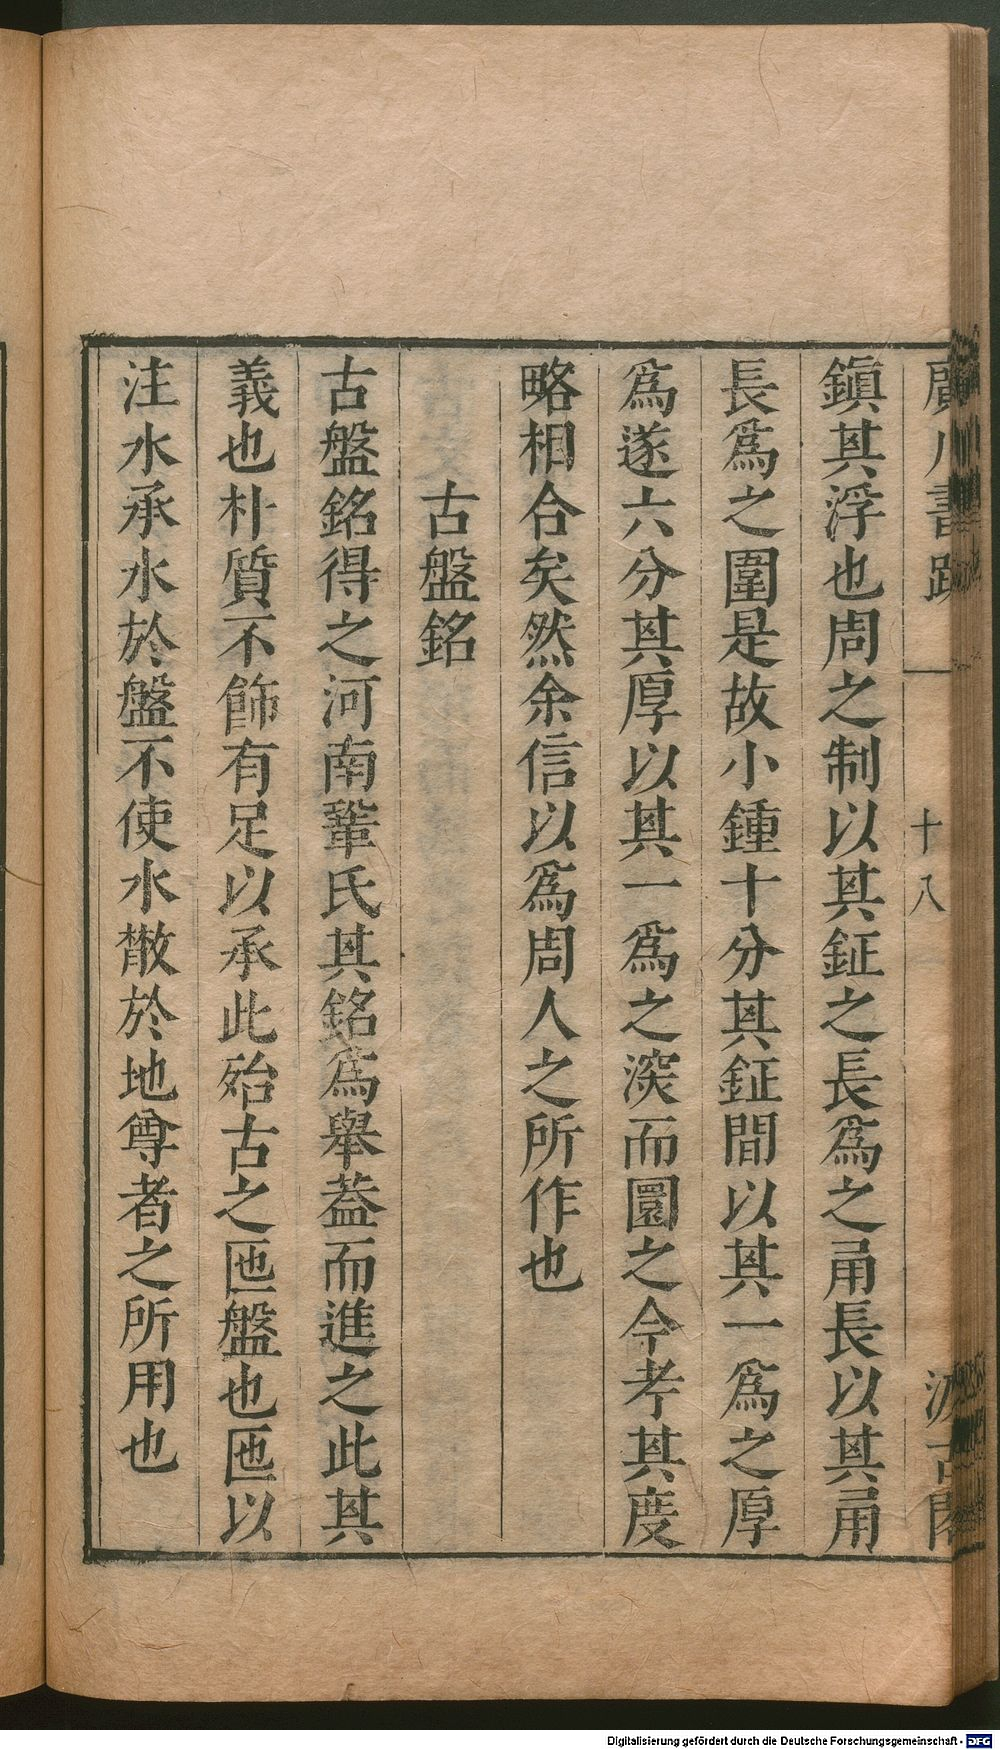 廣川書跋 一 十八 汲古閣
鎮其浮也周之制以其鉦之長爲之甬長以其甬
長爲之圍是故小鍾十分其鉦間以其一爲之厚
爲遂六分其厚以其一爲之㴱而圜之今考其度
略相合矣然余信以爲周人之所作也
古盤銘
古盤銘得之河南鞏氏其銘爲舉葢而進之此其
義也朴質不飾有足以承此殆古之匜盤也匜以
注水承水於盤不使水散於地尊者之所用也
Digitalisierung gefördert durch die Deutsche Forschungsgemeinschaft - DFG